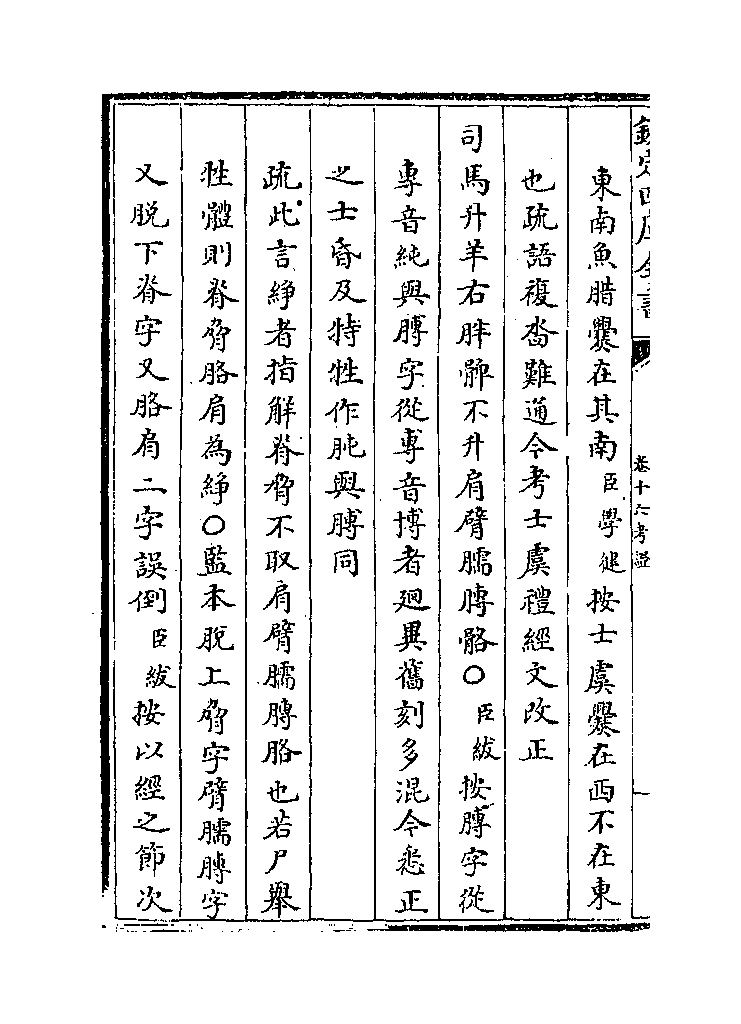 欽定四庫全書
卷十六考證
東南魚腊爨在其南臣學健按士虞爨在西不在東
也疏語複沓難通今考士虞禮經文改正
司馬升羊右胖髀不升肩臂臑膊骼○臣紱按膊字從
專音純與膊字從尃音博者迥異舊刻多混今悉正
之士昏及特牲作肫與膊同
疏此言綪者指解脊脅不取肩臂臑膊胳也若尸舉
牲體則脊脅胳肩為綪○監本脫上脅字臂臑膊字
又脫下脊字又胳肩二字誤倒臣紱按以經之節次